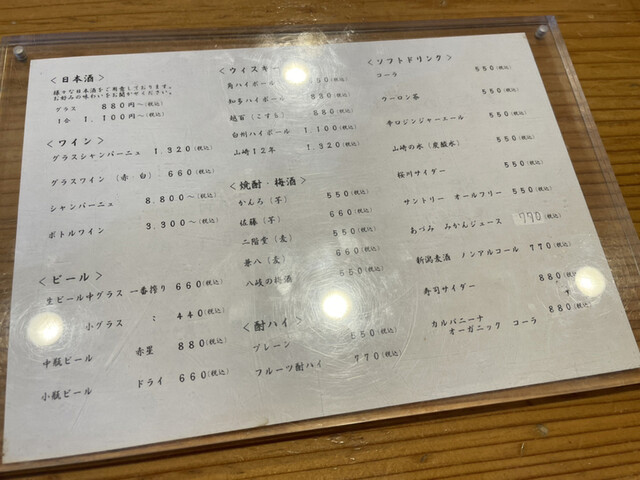 ＜日本酒＞
様々な日本酒をご用意しております。
お好みの味わいをお聞かせください。
グラス 880円～(税込)
1合 1,100円～(税込)
＜ワイン＞
グラスシャンパーニュ 1.320(税込)
グラスワイン (赤・白) 660(税込)
シャンパーニュ 8.800～(税込)
ボトルワイン 3.300～(税込)
＜ビール＞
生ビール中グラス 一番搾り 660(税込)
小グラス : 440(税込)
中瓶ビール 赤星 880(税込)
小瓶ビール ドライ 660(税込)
＜ウィスキー
角ハイボール (税込)
知多ハイボール 880(税込)
越百 (こすも) 880(税込)
白州ハイボール 1,100(税込)
山崎12年 1,320(税込)
＜焼酎・梅酒＞
かんろ (芋) 550(税込)
佐藤 (芋) 660(税込)
二階堂 (麦) 550(税込)
兼八 (麦) 660(税込)
八岐の梅酒 550(税込)
＜酎ハイ＞
プレーン 550(税込)
フルーツ酎ハイ 770(税込)
＜ソフトドリンク＞
コーラ 550(税込)
ウーロン茶 550(税込)
辛口ジンジャーエール 550(税込)
山崎の水 (炭酸水) 550(税込)
桜川サイダー 550(税込)
サントリー オールフリー 550(税込)
あづみ みかんジュース 770(税込)
新潟麦酒 ノンアルコール 770(税込)
寿司サイダー 880(税込)
カルバニーナ
オーガニック コーラ 880(税込)